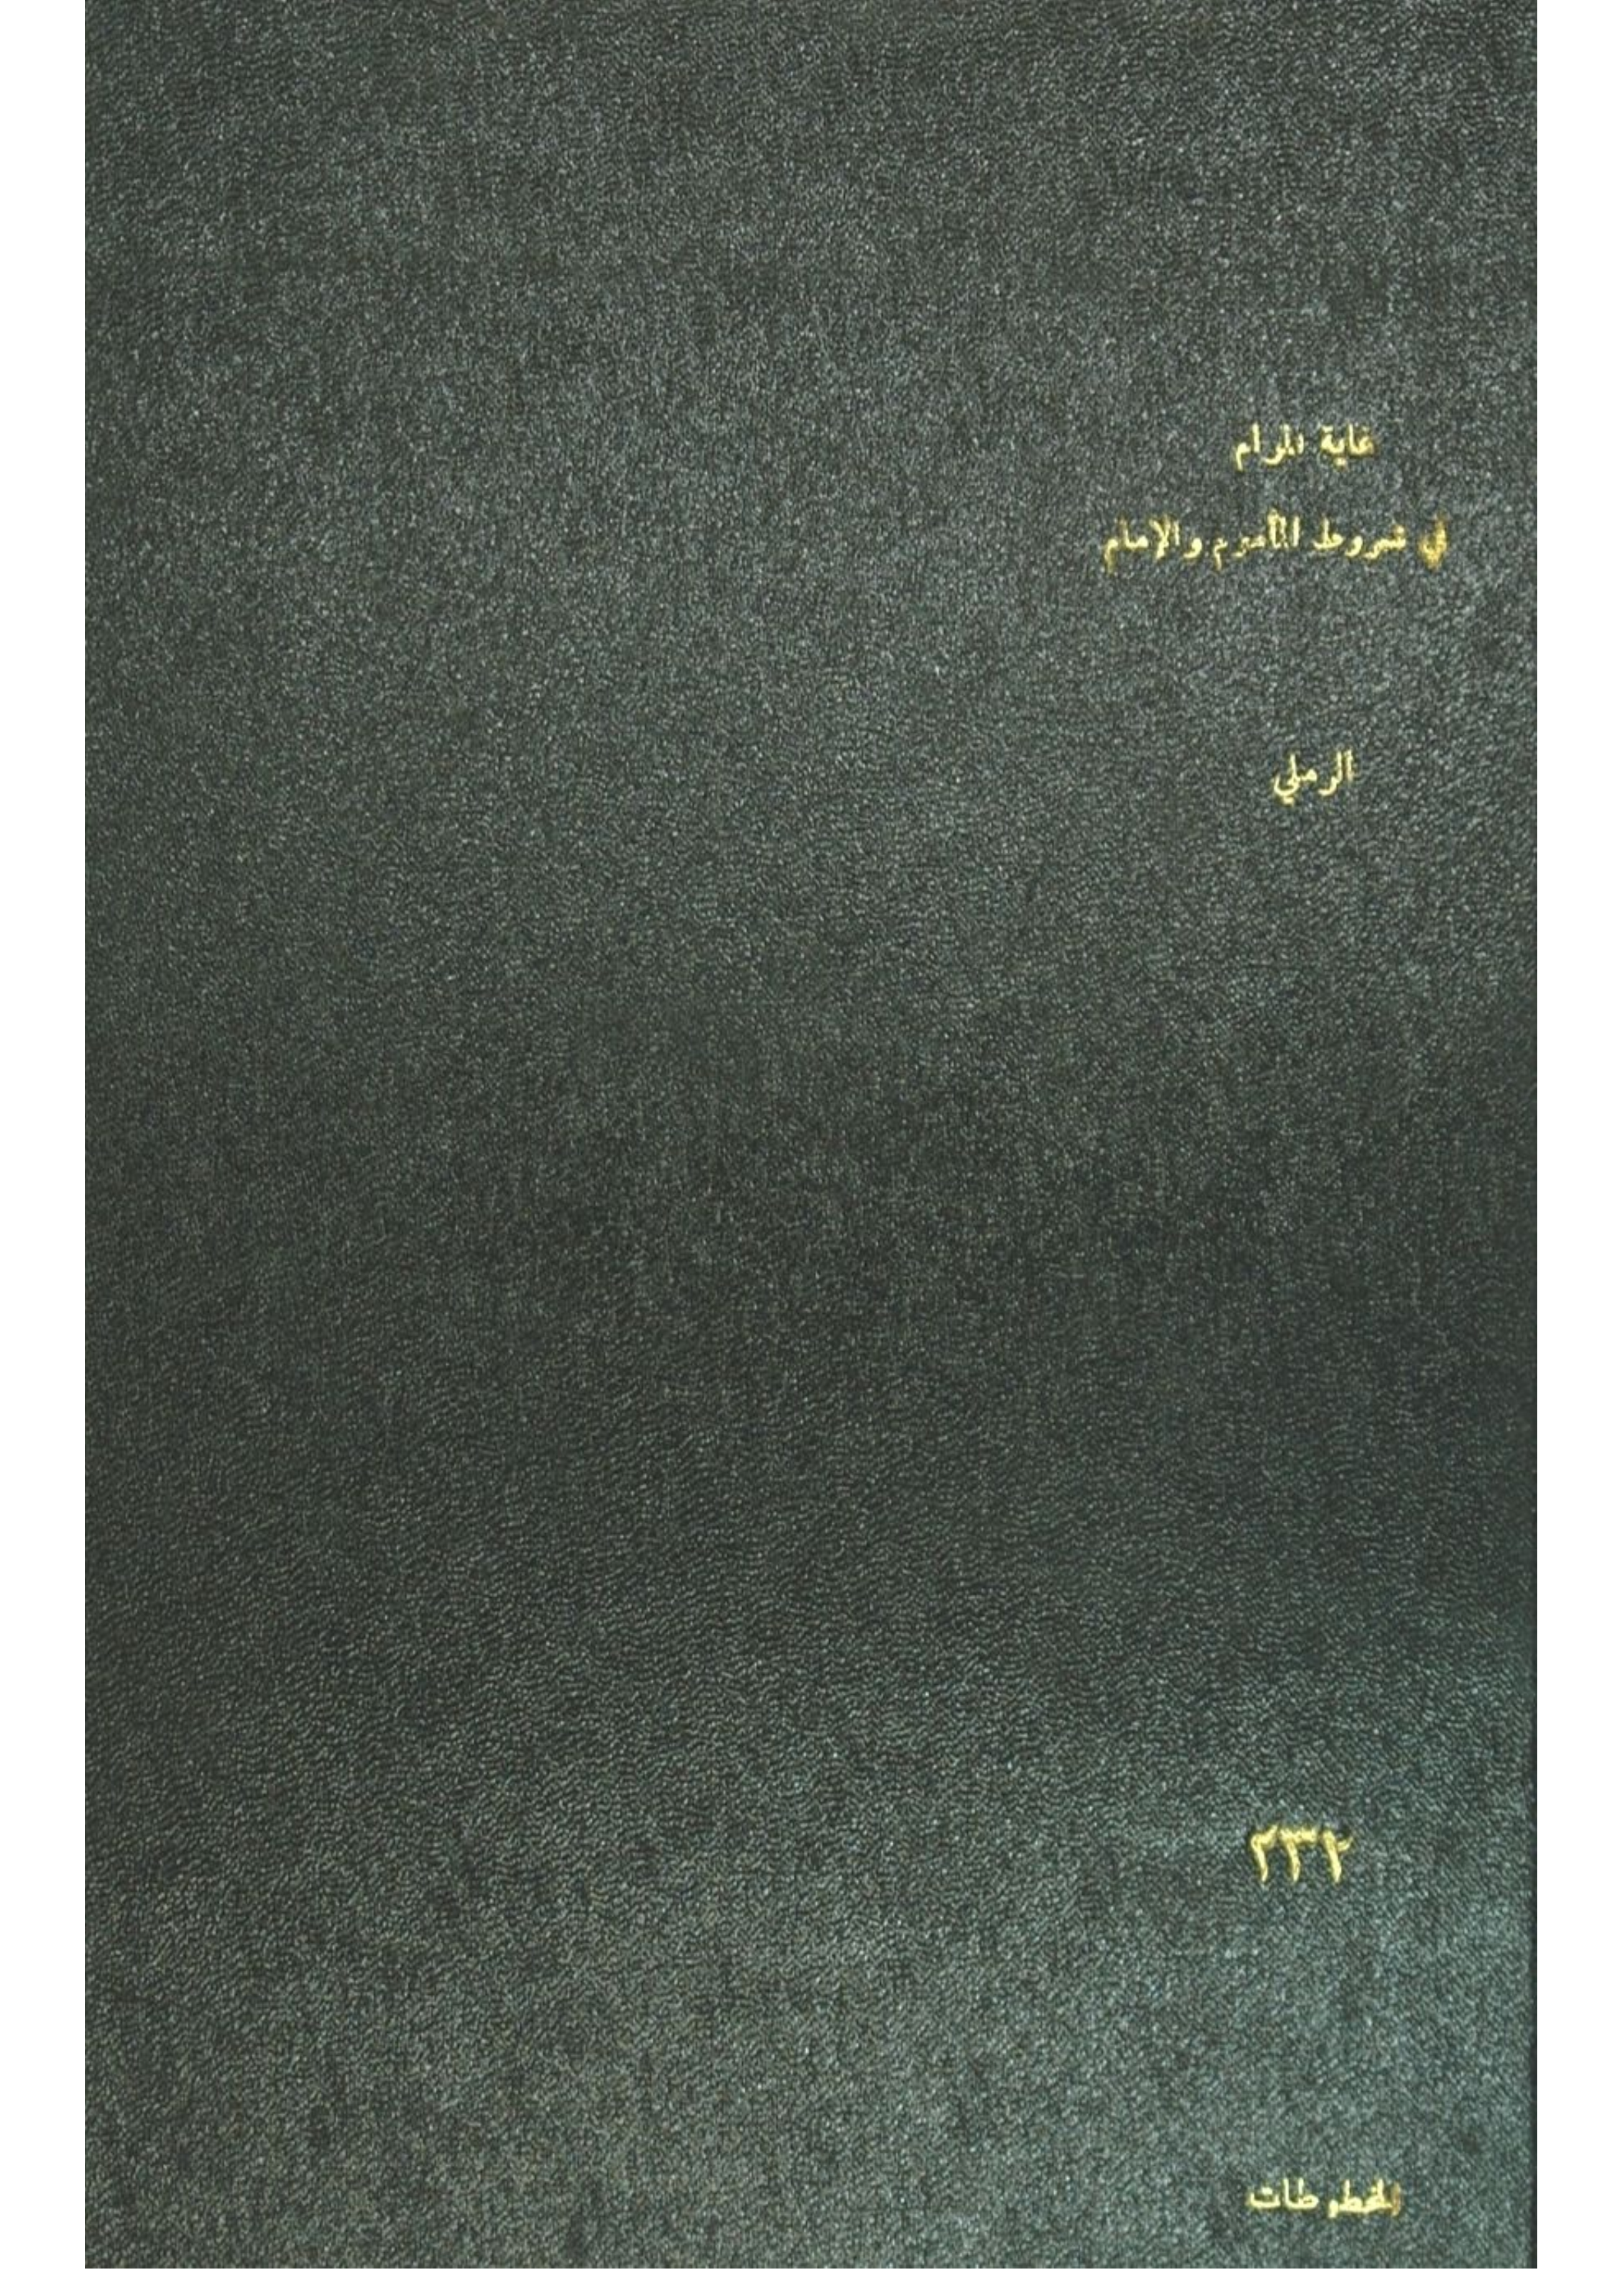 غاية المرام
في شروط المأموم والإمام
الرملي
٢٣٢
المخطوطات